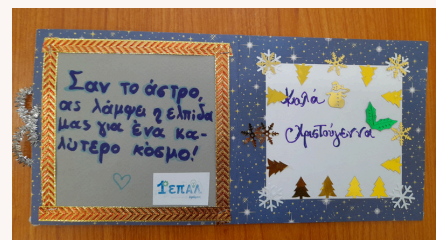 Σαν το άστρο,
ας λάμψει η ελπίδα
μας για ένα κα-
λύτερο κόσμο!
1ο ΕΠΑΛ
Καλά
Χριστούγεννα